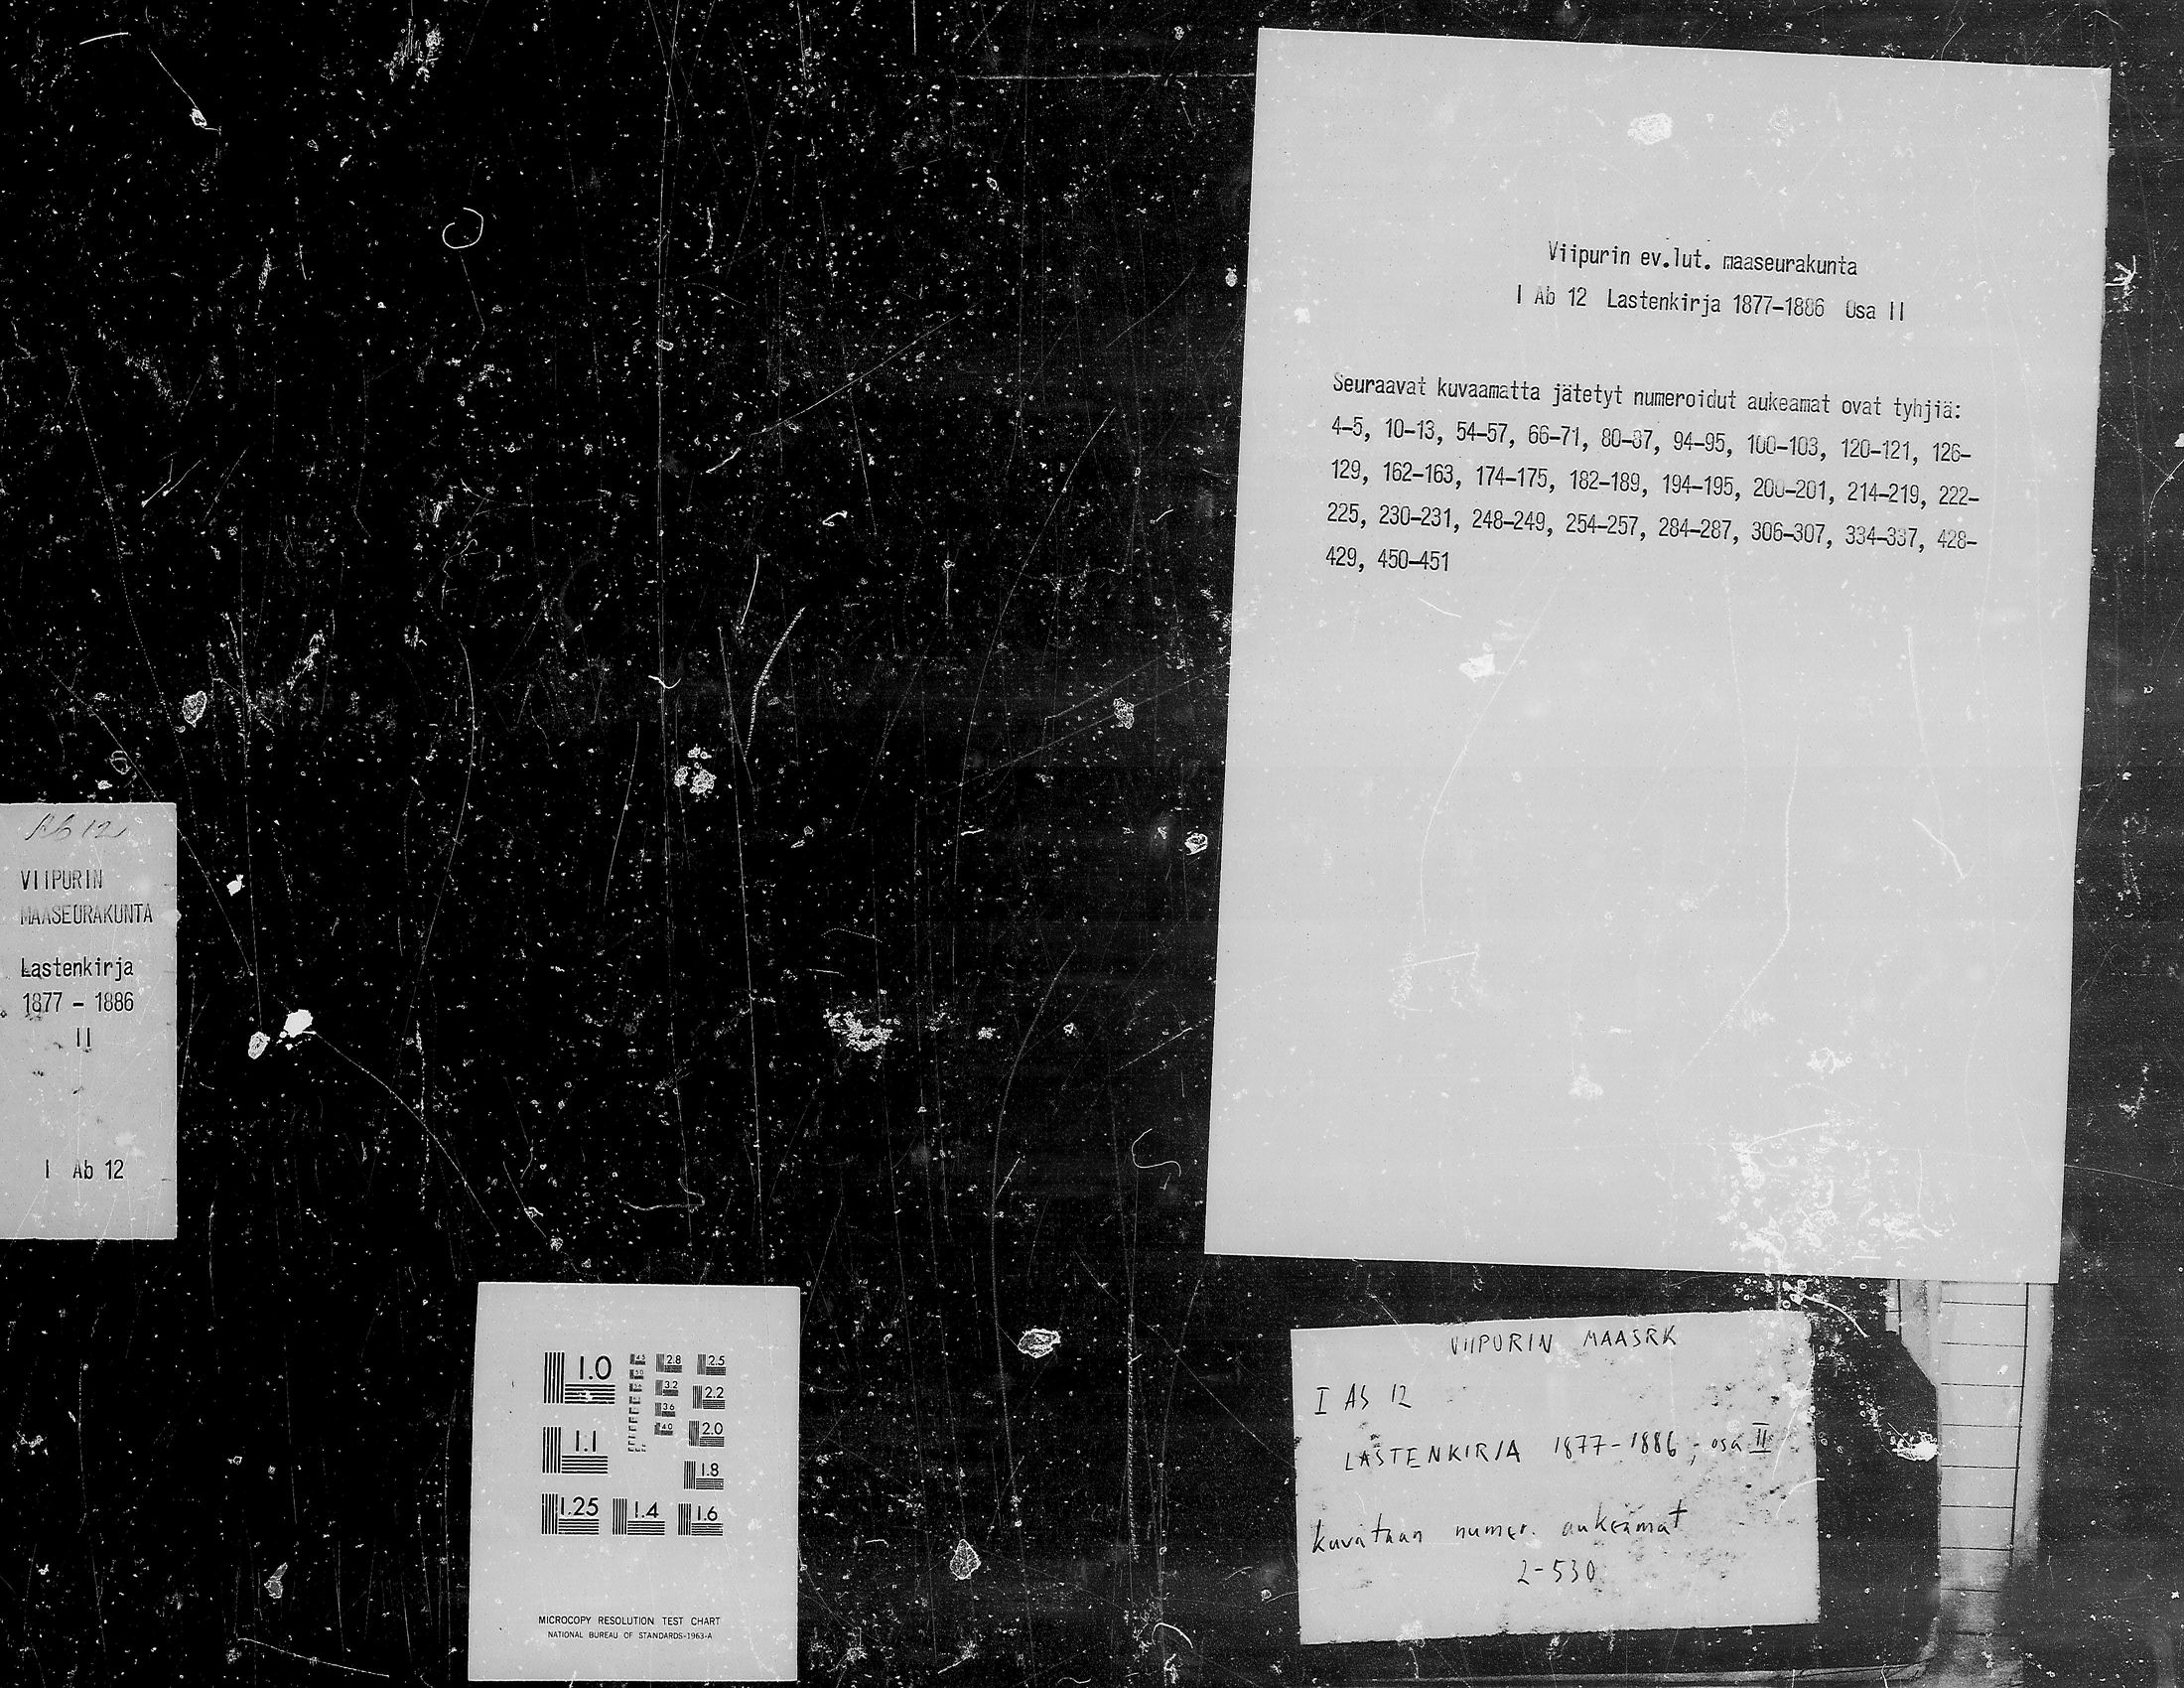 Viipurin ev.lut. maaseurakunta
I Ab 12 Lastenkirja 1877-1886 Osa II
Seuraavat kuvaamatta jätetyt numeroidut aukeamat ovat tyhjiä:
4-5, 10-13, 54-57, 66-71, 80-87, 94-95, 100-103, 120-121, 126-
129, 162-163, 174-175, 182-189, 194-195, 200-201, 214-219, 222-
225, 230-231, 248-249, 254-257, 284-287, 306-307, 334-337, 428-
429, 450-451
Ab 12
VIIPURIN
MAASEURAKUNTA
Lastenkirja
1877 - 1886
II
I Ab 12
1.0
1.1
1.25
1.4
1.6
1.8
2.0
2.2
2.5
2.8
3.2
3.6
4.0
MICROCOPY RESOLUTION TEST CHART
NATIONAL BUREAU OF STANDARDS-1963-A
VIIPURIN MAASRK
I Ab 12
LASTENKIRJA 1877-1886, osa II
kuvataan numer. aukeamat
2-530